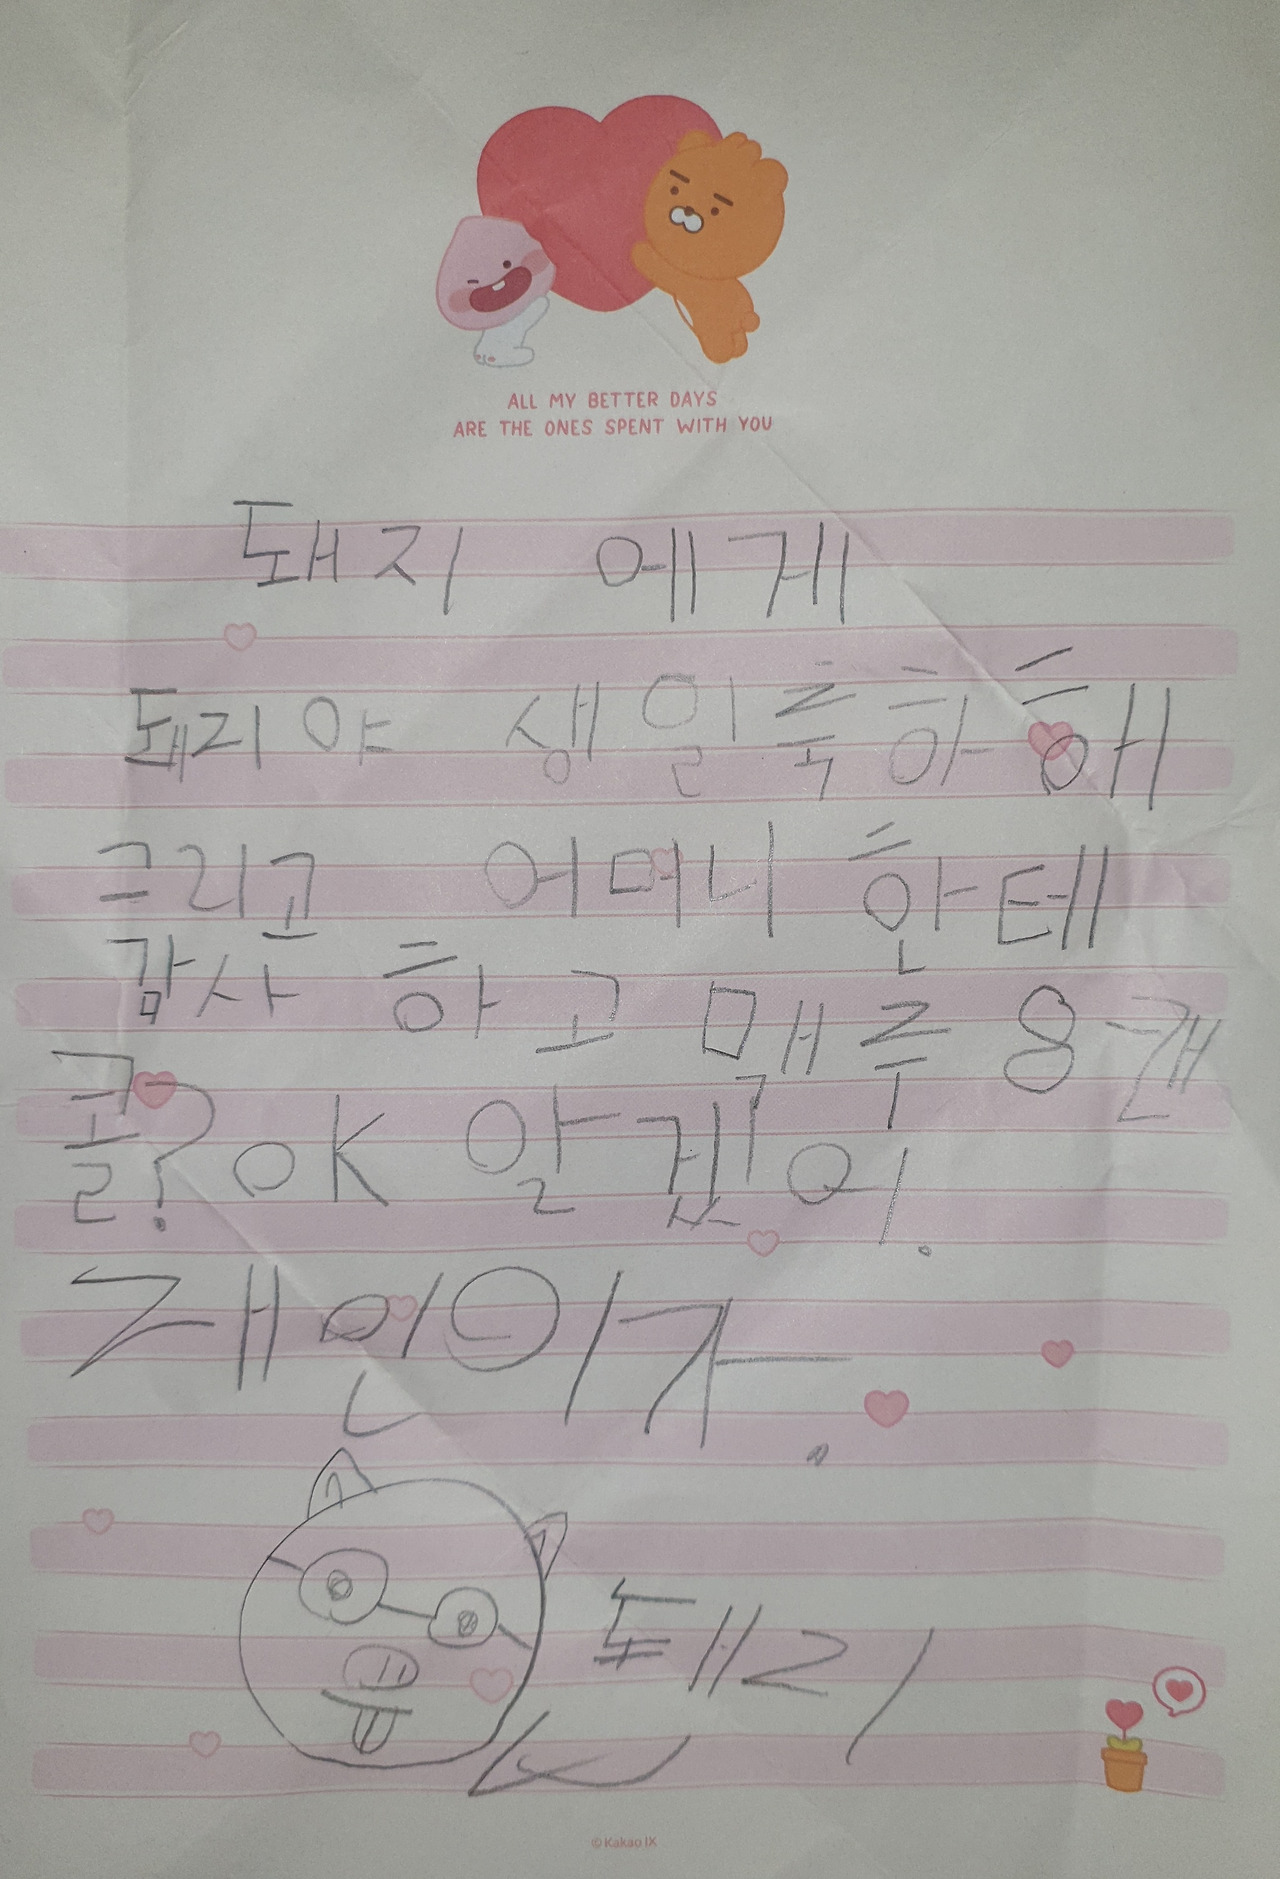 ALL MY BETTER DAYS
ARE THE ONES SPENT WITH YOU
돼지 에게
돼지야 생일축하해
그리고 어머니 한테
감사 하고 맥주 8캔
콜? OK 알겠어.
재인이가.
돼지
© Kakao IX